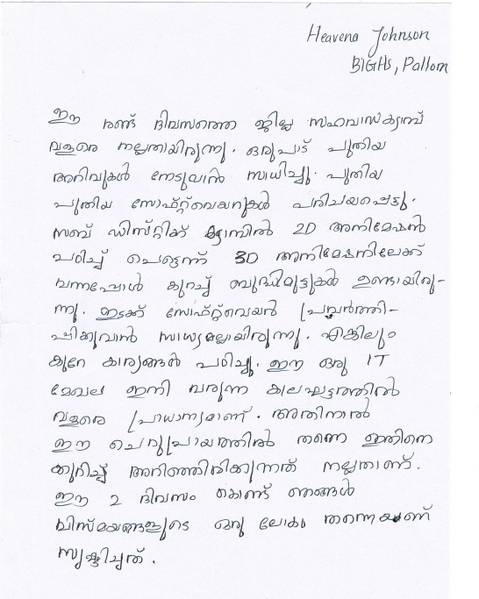 Heavena Johnson
BIGHS, Pallom
ഈ രണ്ട് ദിവസത്തെ ജില്ല സഹവാസക്യാമ്പ്
വളരെ നല്ലതായിരുന്നു. ഒരുപാട് പുതിയ
അറിവുകൾ നേടുവാൻ സാധിച്ചു. പുതിയ
പുതിയ സോഫ്റ്റ്‌വെയറുകൾ പരിചയപ്പെട്ടു.
സബ് ഡിസ്ട്രിക് ക്യാമ്പിൽ 2D അനിമേഷൻ
പഠിച്ച് പെട്ടെന്ന് 3D അനിമേഷനിലേക്ക്
വന്നപ്പോൾ കുറച്ച് ബുദ്ധിമുട്ടുകൾ ഉണ്ടായിരു-
ന്നു. ഇടക്ക് സോഫ്റ്റ്‌വെയർ പ്രവർത്തി-
പ്പിക്കുവാൻ സാധ്യമല്ലായിരുന്നു. എങ്കിലും
കുറേ കാര്യങ്ങൾ പഠിച്ചു. ഈ ഒരു IT
മേഖല ഇനി വരുന്ന കാലഘട്ടത്തിൽ
വളരെ പ്രാധാന്യമാണ്. അതിനാൽ
ഈ ചെറുപ്രായത്തിൽ തന്നെ ഇതിനെ
ക്കുറിച്ച് അറിഞ്ഞിരിക്കുന്നത് നല്ലതാണ്.
ഈ 2 ദിവസം കൊണ്ട് ഞങ്ങൾ
വിസ്മയങ്ങളുടെ ഒരു ലോകം തന്നെയാണ്
സൃഷ്ടിച്ചത്.